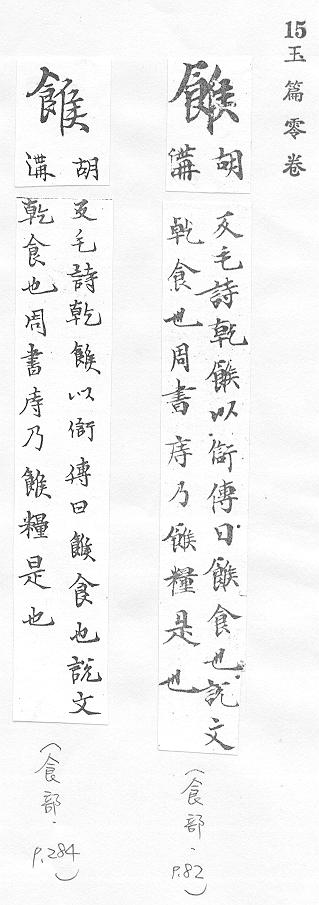 15 玉篇零卷
餱
胡
溝
反毛詩乾餱以傳曰餱食也說文
乾食也周書庤乃餱糧是也
(食部．P.82)
餱
胡
溝
反毛詩乾餱以傳曰餱食也說文
乾食也周書庤乃餱糧是也
(食部．P.284)